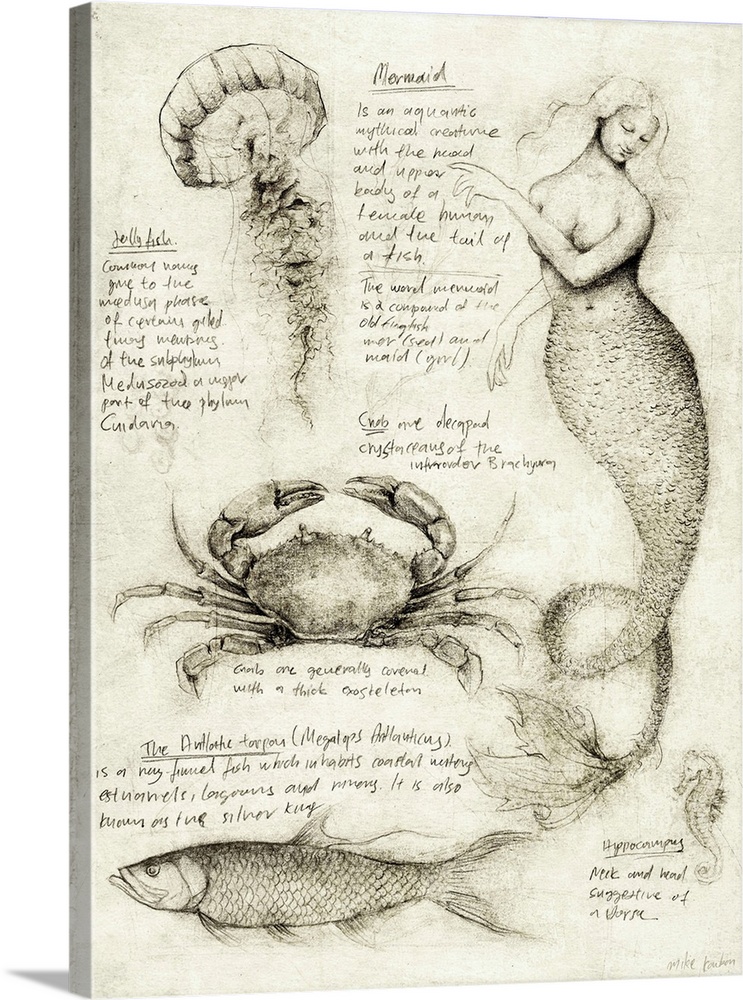 Mermaid
Is an aquatic
mythical creature
with the head
and upper
body of a
female human
and the tail of
a fish.
The word mermaid
is a compound of the
old english
mer (sea) and
maid (girl)
Jelly fish.
Common name
give to the
medusa phase
of certain
members
of the subphylum
Medusozoa a major
part of the phylum
Cnidaria.
Crab are decapod
crustaceans of the
infraorder Brachyura
Crab are generally covered
with a thick exosteleton
The Atlantic tarpon (Megalops Atlanticus)
is a ray-finned fish which inhabits coastal waters
estuaries, lagoons and rivers. It is also
known as the silver king
Hippocampus
Neck and head
suggestive of
a horse
Mike